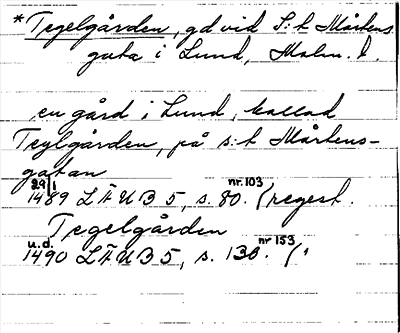 *Tegelgården, gd vid S:t Mårtens
gata i Lund, Malm. l.
en gård i Lund, kallad
Teylgården, på s:t Mårtens-
gatan
29/1 1489 LÄUB 5, s. 80. nr. 103 (regest.
Tegelgården
u.d. 1490 LÄUB 5, s. 136. nr 153 ("